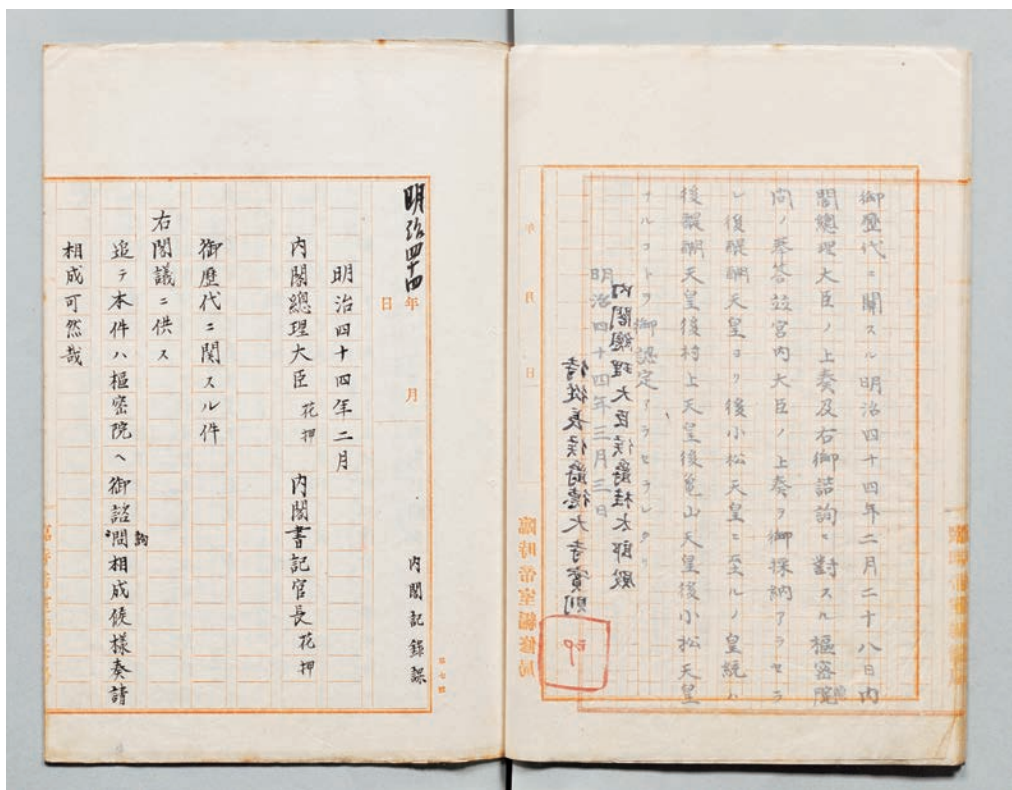 御歴代ニ關スル明治四十四年二月二十八日内
閣總理大臣ノ上奏及右御諮詢ニ對スル樞密院顧
問ノ奉答竝宮内大臣ノ上奏ヲ御採納アラセラ
レ後醍醐天皇ヨリ後小松天皇ニ至ルノ皇統ハ
後醍醐天皇後村上天皇後龜山天皇後小松天皇
ナルコトヲ御認定アラセラレタリ
明治四十四年三月三日
侍從長侯爵德大寺實則
印
内閣總理大臣侯爵桂太郎殿
年 月 日
臨時帝室編修局
明治四十四年 月 日
内閣記録課
第七號
明治四十四年二月
内閣總理大臣 花押 内閣書記官長 花押
御歴代ニ関スル件
右閣議ニ供ス
追テ本件ハ樞密院ヘ御諮問詢相成候様奏請
相成可然哉